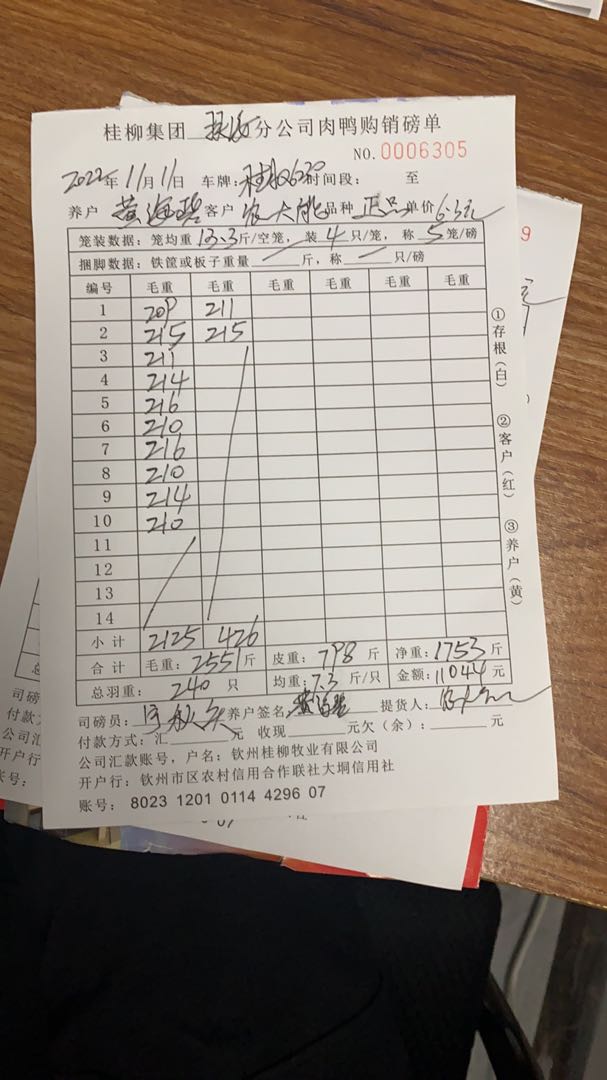 桂柳集团 分公司肉鸭购销磅单
NO.0006305
2022年11月11日 车牌: 时间段: 至
养户 黄海碧 客户 农大 品种 正品 单价 6.3元
笼装数据: 笼均重 13.3 斤/空笼, 装 4 只/笼, 称 5 笼/磅
捆脚数据: 铁筐或板子重量 斤, 称 只/磅
编号 毛重 毛重 毛重 毛重 毛重 毛重
1 209 211
2 215 215
3 211
4 214
5 216
6 210
7 216
8 210
9 214
10 210
11
12
13
14
小计 2125 426
合计 毛重: 2551 斤 皮重: 798 斤 净重: 1753 斤
总羽重: 240 只 均重: 7.3 斤/只 金额: 11044 元
司磅员: 养户签名 黄海碧 提货人:
付款方式: 汇 元 收现 元欠(余): 元
公司汇款账号, 户名: 钦州桂柳牧业有限公司
开户行: 钦州市区农村信用合作联社大垌信用社
账号: 8023 1201 0114 4296 07
①存根(白) ②客户(红) ③养户(黄)
9